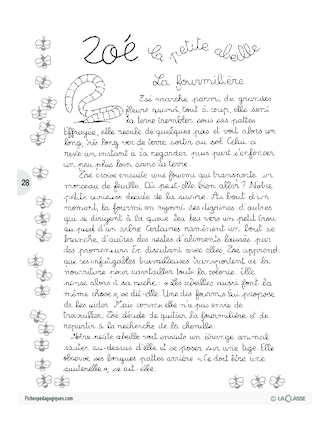 Zoé la petite abeille
La fourmilière
Zoé marche parmi de grandes
fleurs quand, tout à coup, elle sent
la terre trembler sous ses pattes.
Effrayée, elle recule de quelques pas et voit alors un
long, très long ver de terre sortir du sol. Celui-ci
reste un instant à la regarder puis part s'enfoncer
un peu plus loin dans la terre.
Zoé croise ensuite une fourmi qui transporte un
morceau de feuille. Où peut-elle bien aller ? Notre
petite curieuse décide de la suivre. Au bout d'un
moment, la fourmi en rejoint des dizaines d'autres
qui se dirigent à la queue leu leu vers un petit trou
au pied d'un arbre. Certaines ramènent un bout de
branche, d'autres des restes d'aliments laissés par
des promeneurs. En discutant avec elles, Zoé apprend
que ces infatigables travailleuses transportent de la
nourriture pour ravitailler toute la colonie. Elle
pense alors à sa ruche : « Les abeilles aussi font la
même chose », se dit-elle. Une des fourmis lui propose
de les aider. Mais comme elle n'a pas envie de
travailler, Zoé décide de quitter la fourmilière et de
repartir à la recherche de la chenille.
Notre petite abeille voit ensuite un étrange animal
sauter au-dessus d'elle et se poser sur une tige. Elle
observe ses longues pattes arrière. « Ce doit être une
sauterelle », se dit-elle.
28
Fichespedagogiques.com
© LA CLASSE